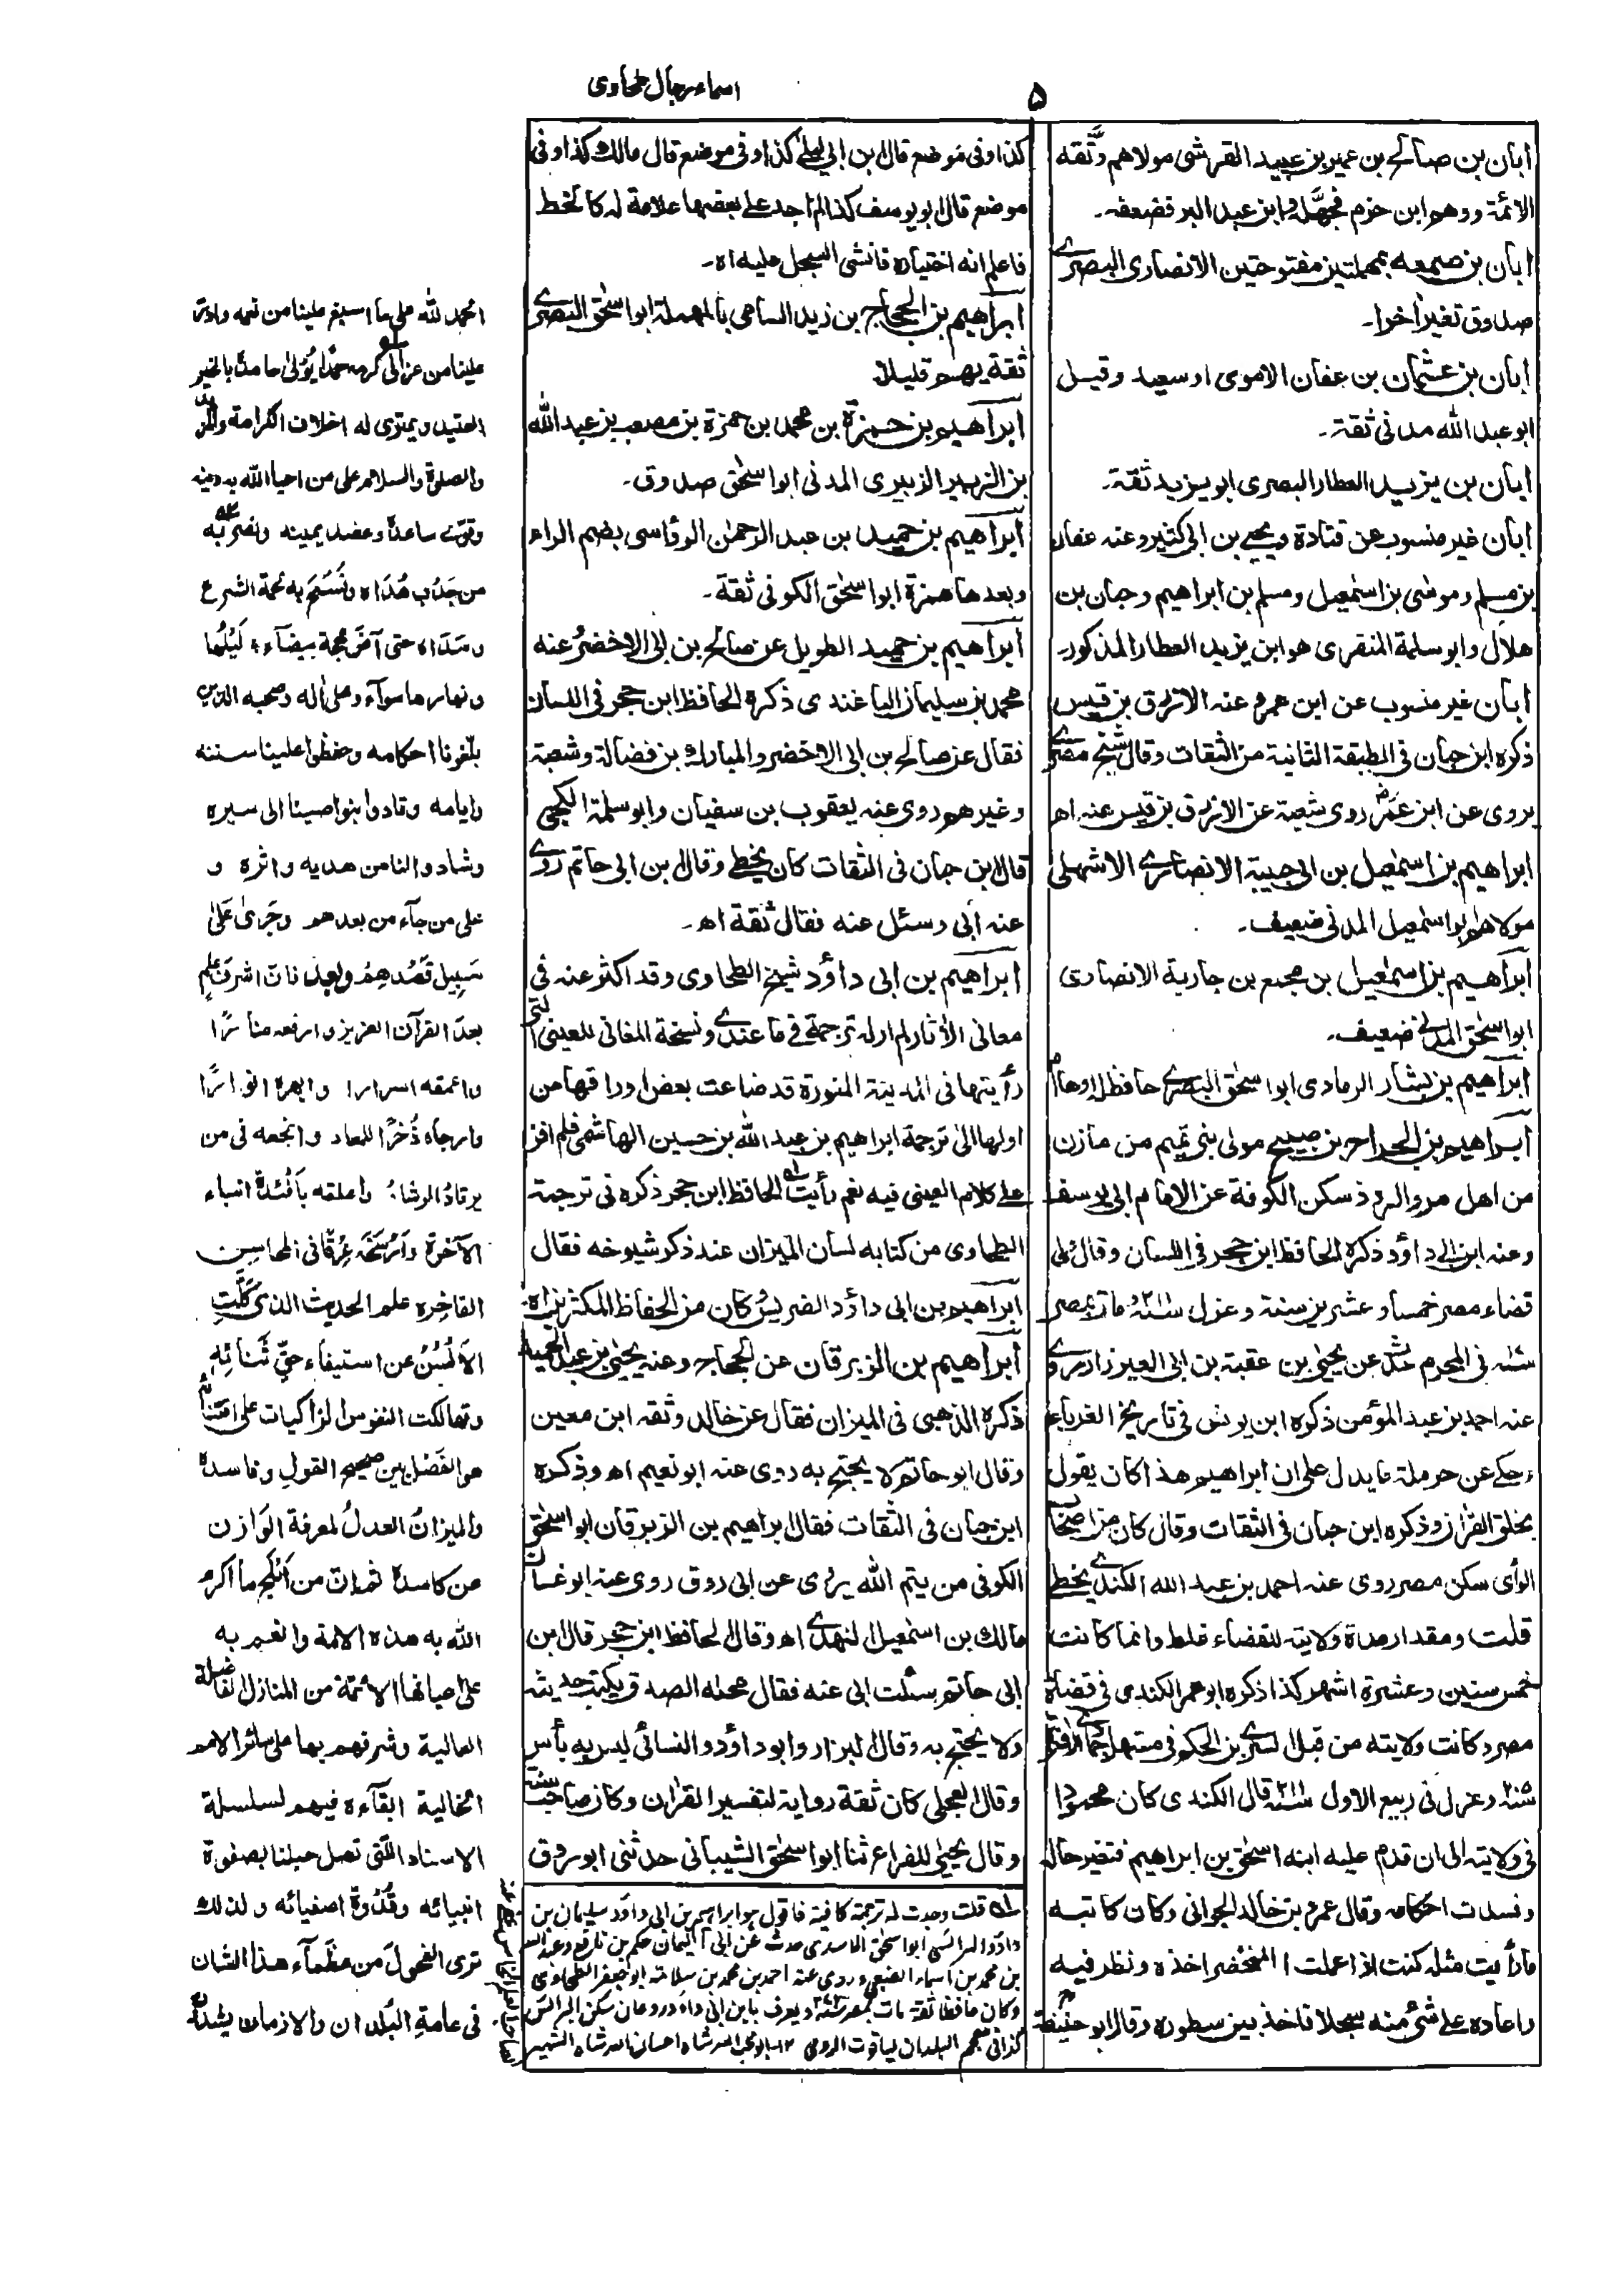 ۵
اسماء رجال طحاوی
ابان بن صالح بن عمیر بن عبید القرشی مولاهم وثّقه
الائمّة ووهم ابن حزم فجهّله وابن عبد البر فضعفه۔
ابان بن صمعه بمهملتین مفتوحتین الانصاری البصرے
صدوق تغیر أخرا۔
ابان بن عثمان بن عفان الاموی ابو سعید وقیل
ابو عبد الله مدنی ثقة۔
ابان بن یزید العطار البصری ابو یزید ثقة۔
ابان غیر منسوب عن قتادة ویحیے بن ابی کثیر وعنه عفان
بن مسلم وموسٰی بن اسمٰعیل ومسلم بن ابراهیم وحبان بن
هلال وابو سلمة المنقری هو ابن یزید العطار المذکور۔
ابان غیر منسوب عن ابن عمر وعنه الازرق بن قیس
ذکره ابن حبان فی الطبقة الثانیة من الثقات وقال شیخ مصرے
یروی عن ابن عمرؓ روی شعبة عن الازرق بن قیس عنه اه
ابراهیم بن اسمٰعیل بن ابی حبیبة الانصارے الاشهلی
مولاهم ابو اسمٰعیل المدنی ضعیف۔
ابراهیم بن اسمٰعیل بن مجمع بن جاریة الانصاری
ابو اسحٰق المدنی ضعیف۔
ابراهیم بن بشار الرمادی ابو اسحٰق البصرے حافظ له اوهام
ابراهیم بن الجراح بن صبیح مولی بنی تمیم من مازن
من اهل مرو الروذ سکن الکوفة عن الامام ابی یوسف
وعنه ابن ابی داؤد ذکره الحافظ ابن حجر فی اللسان وقال ولی
قضاء مصر خمسا وعشرین سنة وعزل سنة ومات بمصر
فی المحرم عن یحیٰی بن عقبة بن ابی العیزار روے
عنه احمد بن عبد المؤمن ذکره ابن یونس فی تاریخ الغرباء
وحکے عن حرملة ما یدل علی ان ابراهیم هذا کان یقول
بخلق القراٰن وذکره ابن حبان فی الثقات وقال کان من اصحاب
الرأی سکن مصر روی عنه احمد بن عبد الله الکندے یخطئ
قلت ومقدار مدة ولایته للقضاء غلط وانما کانت
خمس سنین وعشرة اشهر کذا ذکره ابو عمر الکندی فی قضاة
مصر وکانت ولایته من قبل السرے بن الحکم فی مستهل جمادے الاولٰی
وعزل فی ربیع الاول سنة ٢١١ قال الکندی کان محمودا
فی ولایته الی ان قدم علیه ابنه اسحٰق بن ابراهیم فتغیر حاله
وفسدت احکامه وقال عمرو بن خالد الحرانی وکان کاتبه
ما رأیت مثله کنت اذا عملت له المحضر اخذه ونظر فیه
واعاده علے شئ منه سجلا فاخذ بین سطوره وقال ابو حنیفة
کذا وفی موضع قال ابن ابی لیلے کذا وفی موضع قال مالك کذا وفی
موضع قال ابو یوسف کذا ثم اجد علے بعضها علامة له کالخط
فاعلم انه اختیاره فانشئ السجل علیه اه۔
ابراهیم بن الحجاج بن زید السامی بالمهملة ابو اسحٰق البصرے
ثقة یهم قلیلا۔
ابراهیم بن حمزة بن محمد بن حمزة بن مصعب بن عبد الله
بن الزبیر الزبیری المدنی ابو اسحٰق صدوق۔
ابراهیم بن حمید بن عبد الرحمٰن الرؤاسی بضم الراء
وبعدها همزة ابو اسحٰق الکوفی ثقة۔
ابراهیم بن حمید الطویل عن صالح بن ابی الاخضر وعنه
محمد بن سلیمان الباغندی ذکره الحافظ ابن حجر فی اللسان
فقال عن صالح بن ابی الاخضر والمبارك بن فضالة وشعبة
وغیرهم روی عنه یعقوب بن سفیان وابو سلمة الکجی
قال ابن حبان فی الثقات کان یخطئ وقال ابن ابی حاتم روے
عنه ابی وسئل عنه فقال ثقة اه۔
ابراهیم بن ابی داؤد شیخ الطحاوی وقد اکثر عنه فی
معانی الأثار لم ار له ترجمة فی ما عندے ونسخة المغانی للعینی التی
رأیتها فی المدینة المنورة قد ضاعت بعض اوراقها من
اولها الی ترجمة ابراهیم بن عبد الله بن حسین الهاشمی فلم افز
علے کلام العینی فیه نعم رأیت الحافظ ابن حجر ذکره فی ترجمة
الطحاوی من کتابه لسان المیزان عند ذکر شیوخه فقال
ابراهیم بن ابی داؤد الضریس کان من الحفاظ المکثرین اه۔
ابراهیم بن الزبرقان عن الحجاج وعنه یحیٰی بن عبد الحمید
ذکره الذهبی فی المیزان فقال عن خالد وثقه ابن معین
وقال ابو حاتم لا یحتج به روی عنه ابو نعیم اه وذکره
ابن حبان فی الثقات فقال ابراهیم بن الزبرقان ابو اسحٰق
الکوفی من یتم الله یروی عن ابی روق روی عنه ابو غسان
مالك بن اسمٰعیل النهدے اه وقال الحافظ ابن حجر قال ابن
ابی حاتم سئلت ابی عنه فقال محله الصدق یکتب حدیثه
ولا یحتج به وقال البزار وابو داؤد والنسائی لیس به بأس
وقال العجلی کان ثقة روایة لتفسیر القراٰن وکان صاحب سنة
وقال یحیٰی الفراء ثنا ابو اسحٰق الشیبانی حدثنی ابو روق
له قلت وجدت له ترجمة کافیة فاقول هو ابراهیم بن ابی داود سلیمان بن
داؤد البرلسی ابو اسحٰق الاسدی حدث عن ابی الیمان حکم بن نافع وعبد الله
بن محمد بن اسماء الضبعی روی عنه احمد بن محمد بن سلامة ابو جعفر الطحاوی
وکان حافظا ثقة مات بمصر ویعرف بابن ابی داؤد وکان سکن البرلس
کذا فی معجم البلدان لیاقوت الرومی ١٢ ابو محب الله شاه احسان الله شاه الشهیر
الحمد لله علی ما اسبغ علینا من نعمه وادر
علینا من عزالی کرمه حمدا یُوْلی حامده بالخیر
العتید ویمتری له اخلاف الکرامة والمزید
والصلوة والسلام علی من احیا الله به دینه
وقوّے ساعده وعضد یمینه ونصر به
من جذب هُداه
وسَداه حتی آضَ محجة بیضاء لَیْلُها
ونهارها سوآء وعلی أله وصحبه الذین
بلّغونا احکامه وحفظوا علینا سننه
وایامه وقادوا بنواصینا الی سیره
وشادوا لنا من هدیه واثره و
علی من جآء من بعدهم وجَریٰ عَلیٰ
سَبِیل قَصْدهِمْ وبعد فان اشرف علم
بعد القرآن العزیز وارفعه منارًا
واعمقه اسرارا وابهره انوارًا
وارجاه ذُخرًا للمعاد وانجعه فی من
یرتاد الرشاد واعلقه بافئدة ابناء
الآخرة وارسخه عِرْقا فی المحاسن
الفاخرة علم الحدیث الذی کَلَّتِ
الاَلْسُنُ عن استیفاء حقِّ ثَنائِه
وتهالکت النفوس الزاکیات علی اقتنائه
هو الفَضل بین صحیح القول وفاسده
والمیزان العدلُ لمعرفة الوَازن
من کاسده ثم انّ من اَنْجِح ما اکرم
الله به هذه الامة وانعم به
علی احیائها الائمّة من المنازل الفاضلة
العالیة وشرفهم بها علی سائر الامم
الخالیة ابقآءه فیهم لسلسلة
الاسناد التی تصل حبلنا بصفوة
انبیائه وقُدْوة اصفیائه ولذلك
تری الفحولَ من عظمآء هذا الشان
فی عامةِ البُلدان والازمان یشد